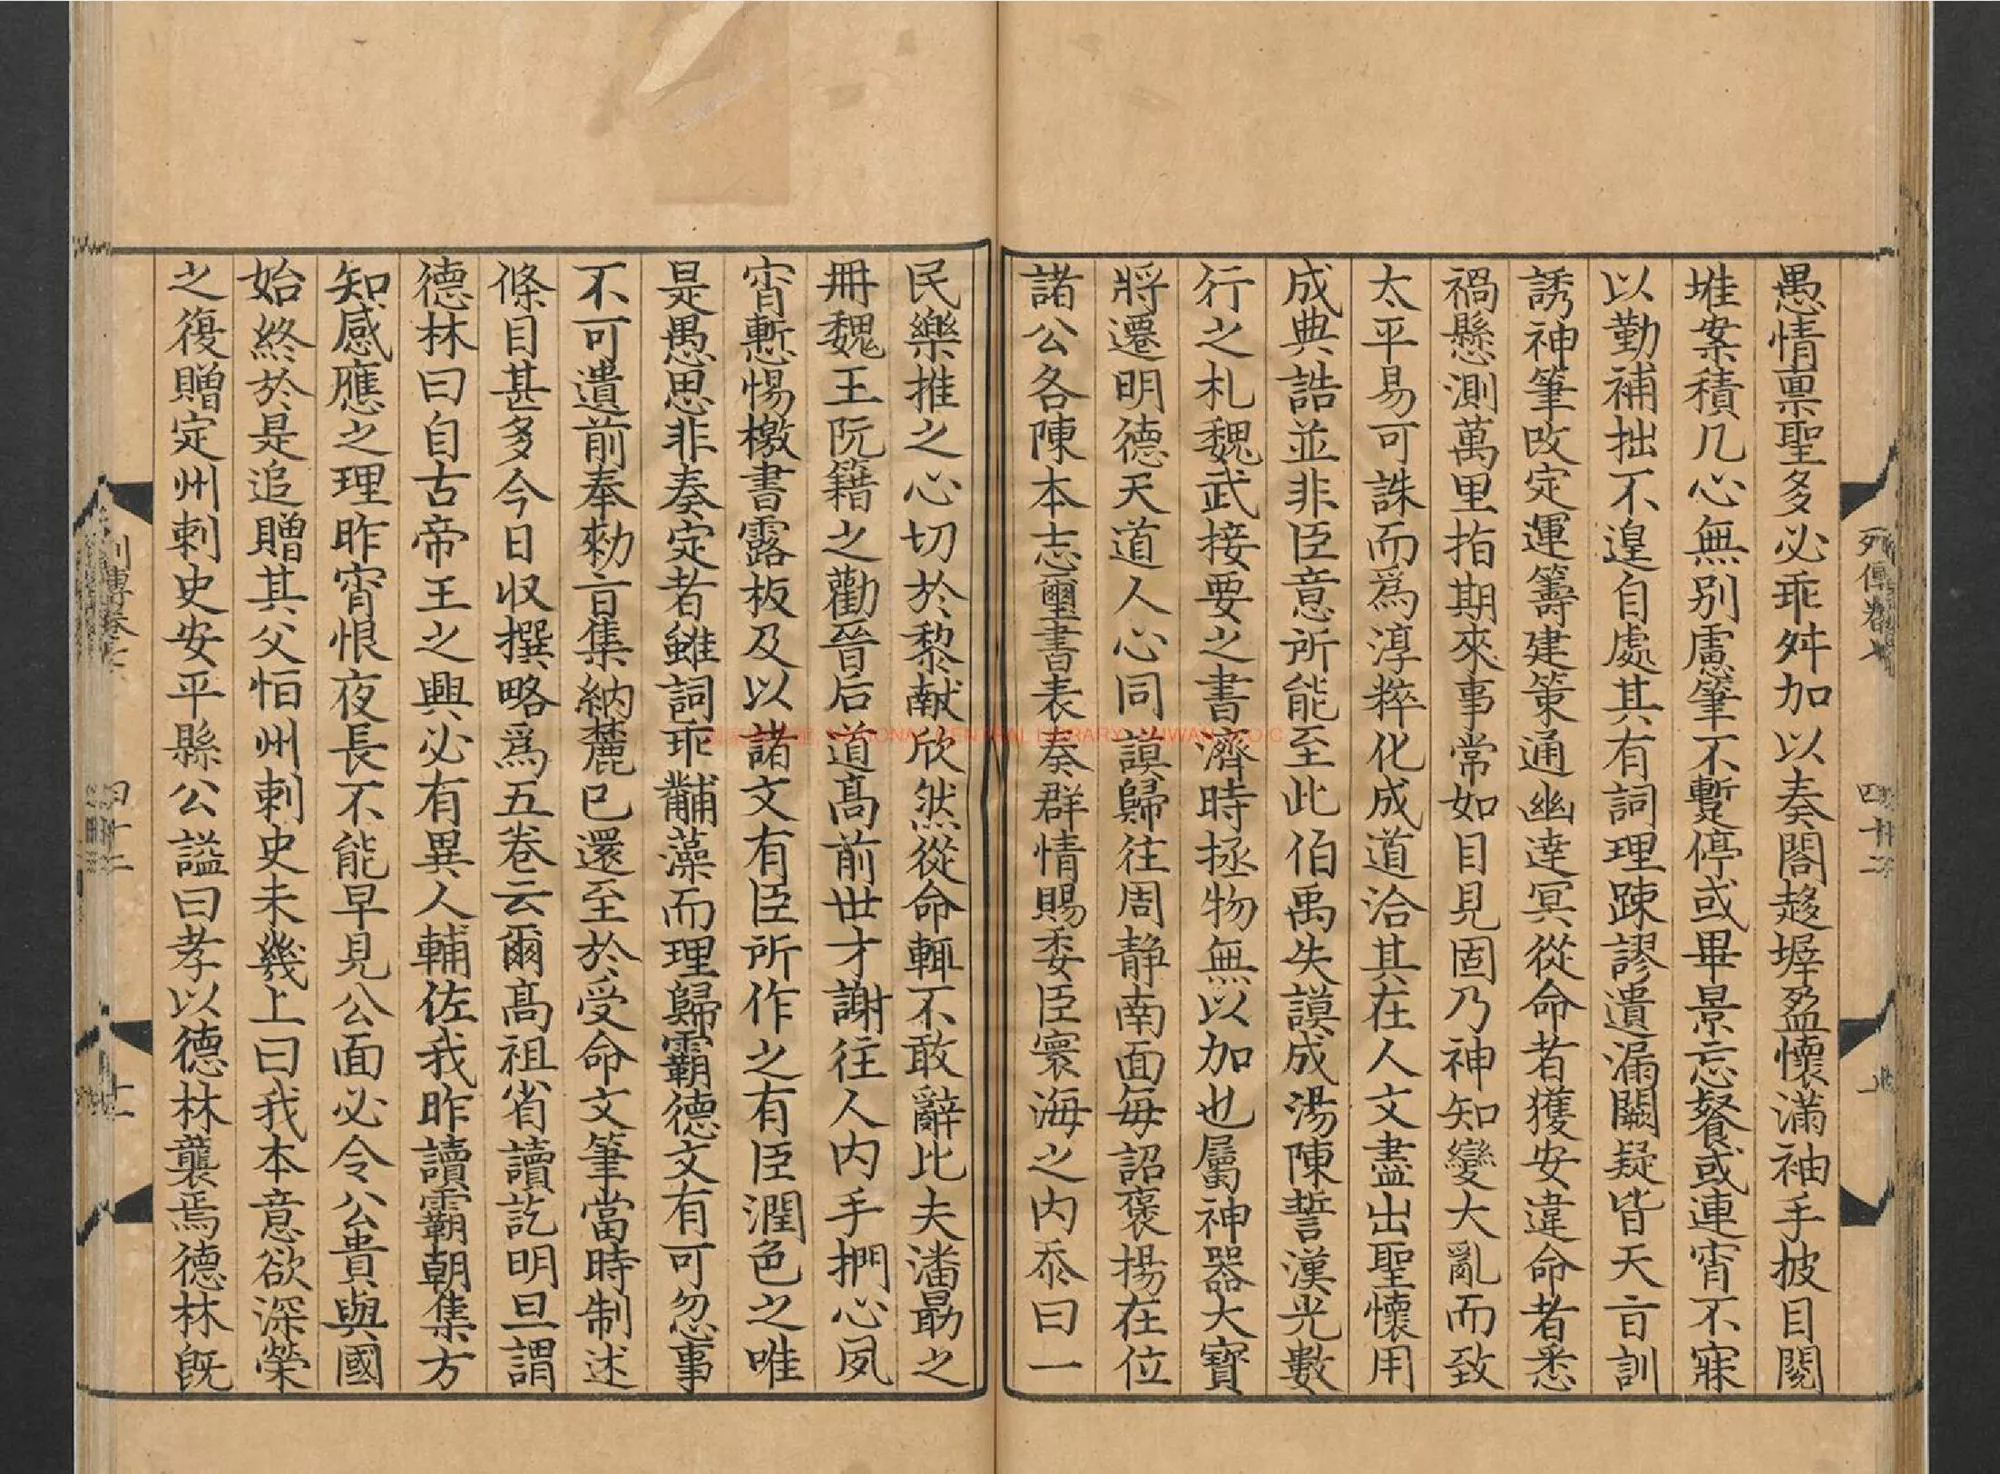 愚情禀聖多必乖舛加以奏閣趍墀盈懷滿袖手披目閱
堆案積几心無别慮筆不暫停或畢景忘餐或連宵不寐
以勤補拙不遑自處其有詞理踈謬遺漏闕疑皆天㫖訓
誘神筆改定運籌建策通幽達冥從命者獲安違命者悉
禍懸測萬里指期來事常如目見固乃神知變大亂而致
太平易可誅而爲淳粹化成道洽其在人文盡出聖懷用
成典誥並非臣意所能至此伯禹失謨成湯陳誓漢光數
行之札魏武接要之書濟時拯物無以加也屬神器大寶
將遷明德天道人心同謨歸往周静南面每詔褒揚在位
諸公各陳本志璽書表奏群情賜委臣寰海之内忝曰一
民樂推之心切於黎献欣然從命輒不敢辭比夫潘勗之
冊魏王阮籍之勸晉后道髙前世才謝往人内手捫心夙
宵慙惕檄書露板及以諸文有臣所作之有臣潤色之唯
是愚思非奏定者雖詞乖黼藻而理歸霸德文有可忽事
不可遺前奉勑㫖集納麓已還至於受命文筆當時制述
條目甚多今日収撰略爲五卷云爾髙祖省讀訖明旦謂
德林曰自古帝王之興必有異人輔佐我昨讀霸朝集方
知感應之理昨宵恨夜長不能早見公面必令公貴與國
始終於是追贈其父恒州刺史未幾上曰我本意欲深榮
之復贈定州刺史安平縣公謚曰孝以德林襲焉德林旣